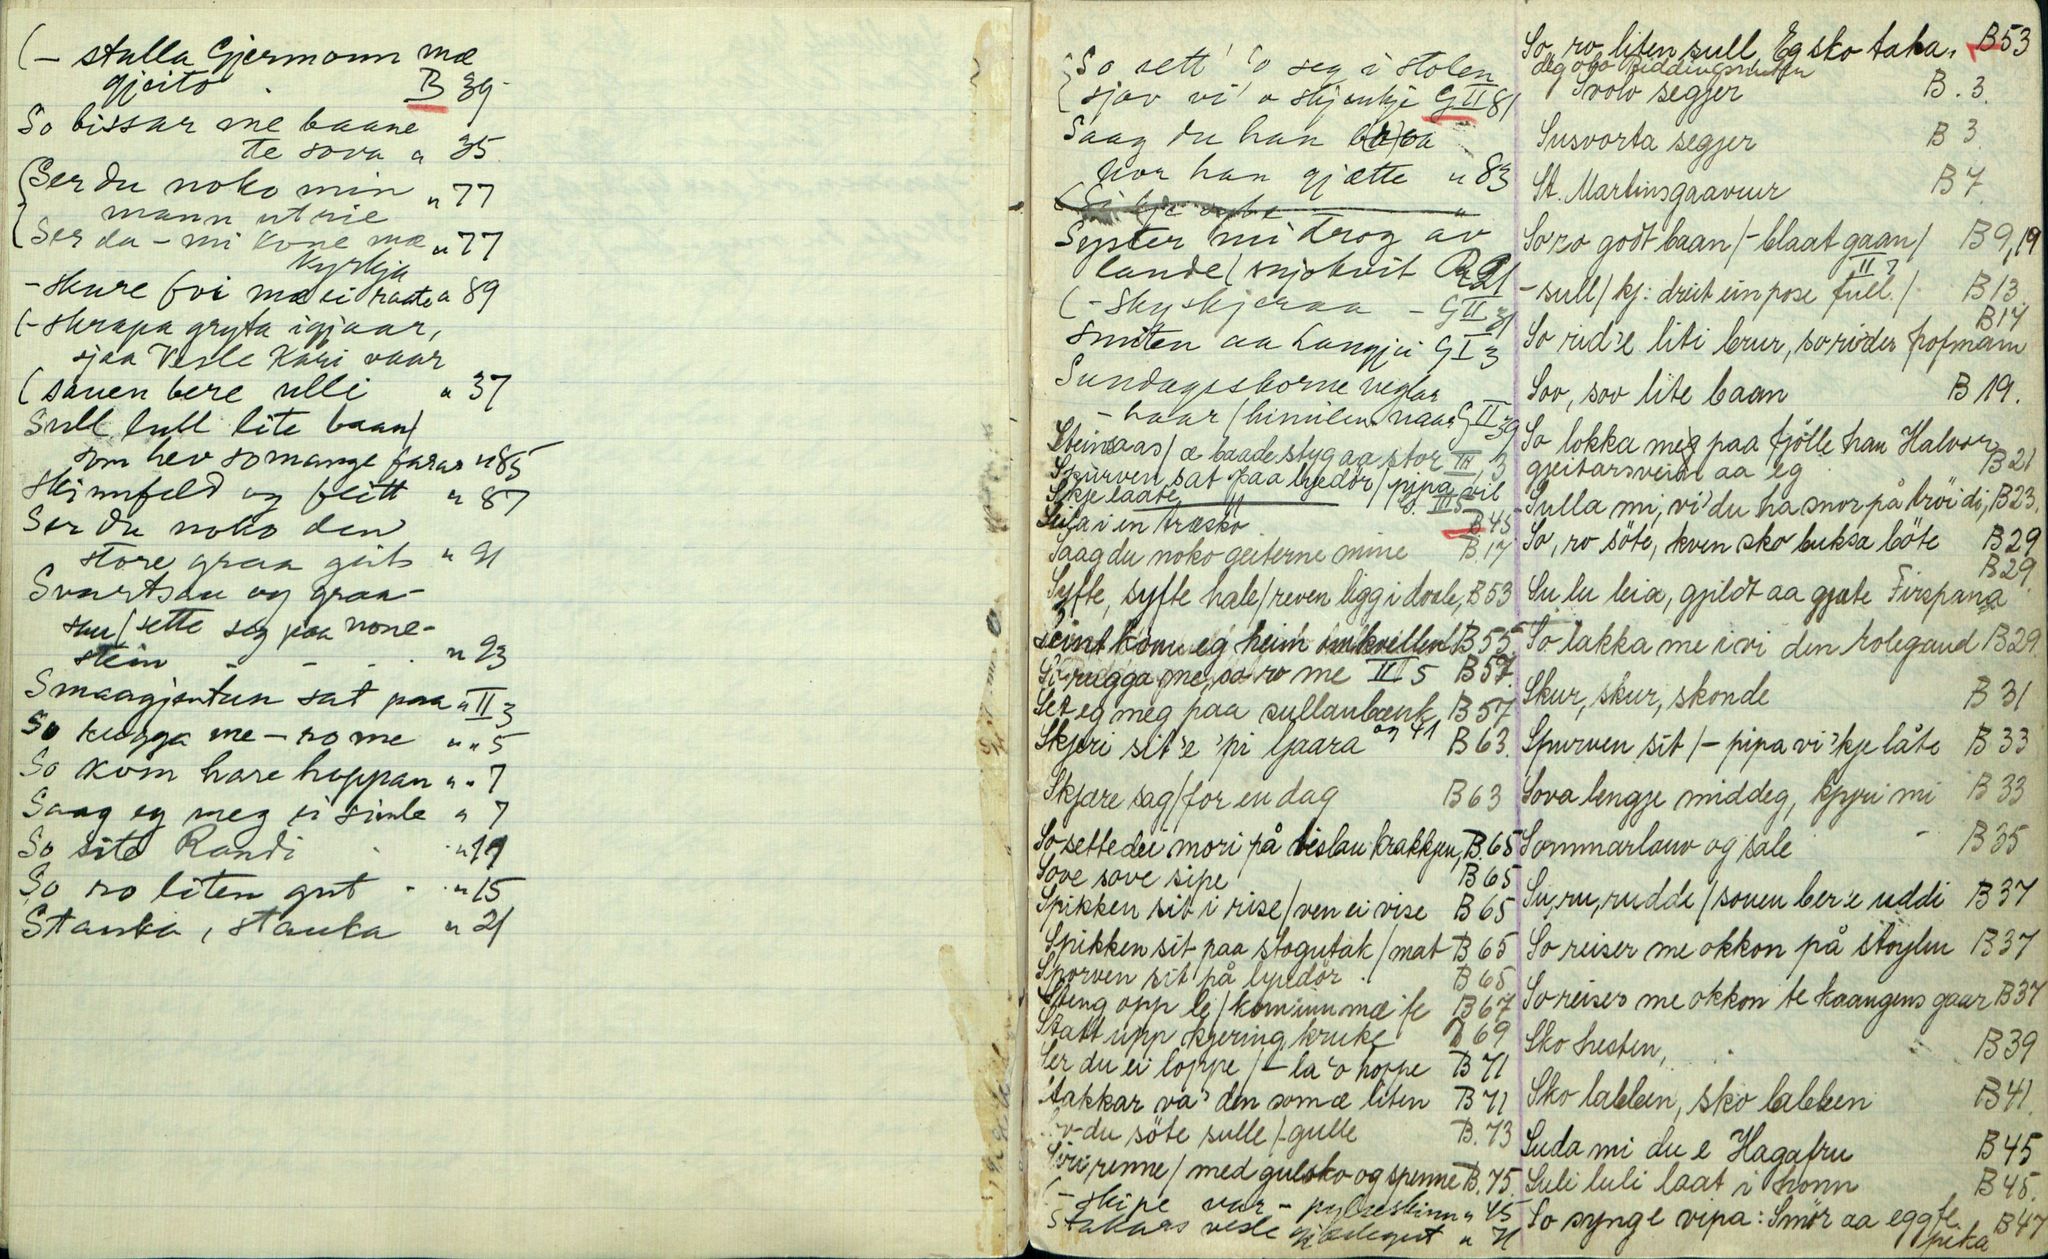 (- stulla Gjermonn mæ
gjeito . B 39-
So bissar me baane
te sova " 35
(Ser du noko min
mann utrie " 77
Ser du - mi kone mæ " 77
kyrkja
- skure fri mæ ei raate " 89
(- skrapa gryta igjaar,
sjaa Vesle Kari vaar
(sauen bere ulli " 37
Sull lull lite baan/
som hev so mange farar " 85
Skinnfeld og flitt " 87
Ser du noko den
store graa geit " 91
Svartsau og graa-
sau/sette seg paa none-
stein - - - . " 93
Smaagjentun sat paa " II 3
So rugga me - ro me " " 5
So kom hare hoppan " " 7
Saag eg meg ei simle " 7
So sit'e Randi . . " 11
So ro liten gut - . " 15
Stauka, stauka " 21
So sett 'o seg i stolen
sjav vi' o skjenkje G II 81
Saag du han
Nor han gjætte " 83
Syster mi drog av
lande/snjokvit
(- Skyskjeraa - G II 31
smiten aa Langjei G I 3
Sundagsborne neglar
- haar/himilen naar G II 39
Steinsaas/æ baade styg aa stor III, 3
Spurven sat paa lyedör/pipa vil
Skje laate G. III 5
Luja i en træsko B 45
Saag du noko geiterne mine B. 17
Syfte, syfte hale/reven ligg i doale, B 53
Seint kom eg heim imkvellen B 55.
So rugga me, so ro me III 5 B 57.
Set eg meg paa sullanbænk, B 57
og 41
Skjeri sit'e 'pi ljaara B 63.
Skjære sag/for en dag B 63
So sette dei mori på beislan krakkjen, B. 65
Sove sove sipe B 65
Spikken sit i rise/ven ei vise B 65
Spikken sit paa stogutak/mat B 65
Sporven sit på lyedör . B 65
Steng opp le/kom inn mæ fe B 67
Statt upp kjering kruke B 69
Ser du ei loppe/- la 'o hoppe B 71
Stakkar va' den som æ liten B 71
Sov du söte sulle/-gulle B. 73
Siri renne/med gulsko og spenne B. 75.
(- skipe var - " 45
Stakars vesle gjætlegut " 71
So, ro liten sull Eg sko taka, B 53
deg
Svolo segjer B. 3.
Susvorta segjer B 3.
St. Martinsgaavuur B 7.
So ro godt baan/- blaat gaan/ B 9, 19
II 7
- sull/kj: dreit ein pose full./ B 13
B 17.
So rid'e liti brur, so rider hofmann
Sov, sov lite baan B 19.
So lokka meg paa fjölle han Halvor
gjeitarsvein aa eg B 21
Sulla mi, vi' du ha snor på tröi di, B 23.
So, ro söte, kven sko buksa böte B 29
B 29
Su lu leia, gjildt aa gjæte Firspana
So lakka me ivi den rolegaud B 29.
Skur, skur, skonde B 31
Spurven sit/- pipa vi 'kje låte B 33
Sova lengje middeg, kjyri mi B 33
Sommarlauv og sale - B 35
Su, ru, rudde/souen ber'e uddi B 37
So reiser me okkon på stoylen B 37
So reiser me okkon te kaangens gaar B 37
Sko hesten, . B 39
Sko labben, sko labben B 41.
Suda mi du e Hagafru B 45
Suli luli laat i hönn B 45.
So syng'e vipa: Smör aa egg te B 47
peka